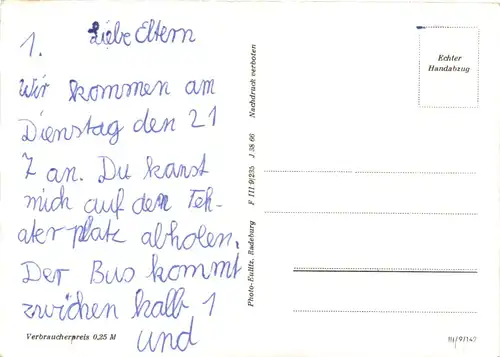 1. Liebe Eltern
Wir kommen am
Dienstag den 21
7 an. Du kanst
mich auf den Teh-
aterplatz abholen.
Der Bus kommt
zwichen halb 1
und
Verbraucherpreis 0,25 M
Photo-Kulitz, Radeburg F III/9/235 J 38 66 Nachdruck verboten
Echter
Handabzug
III/9/147